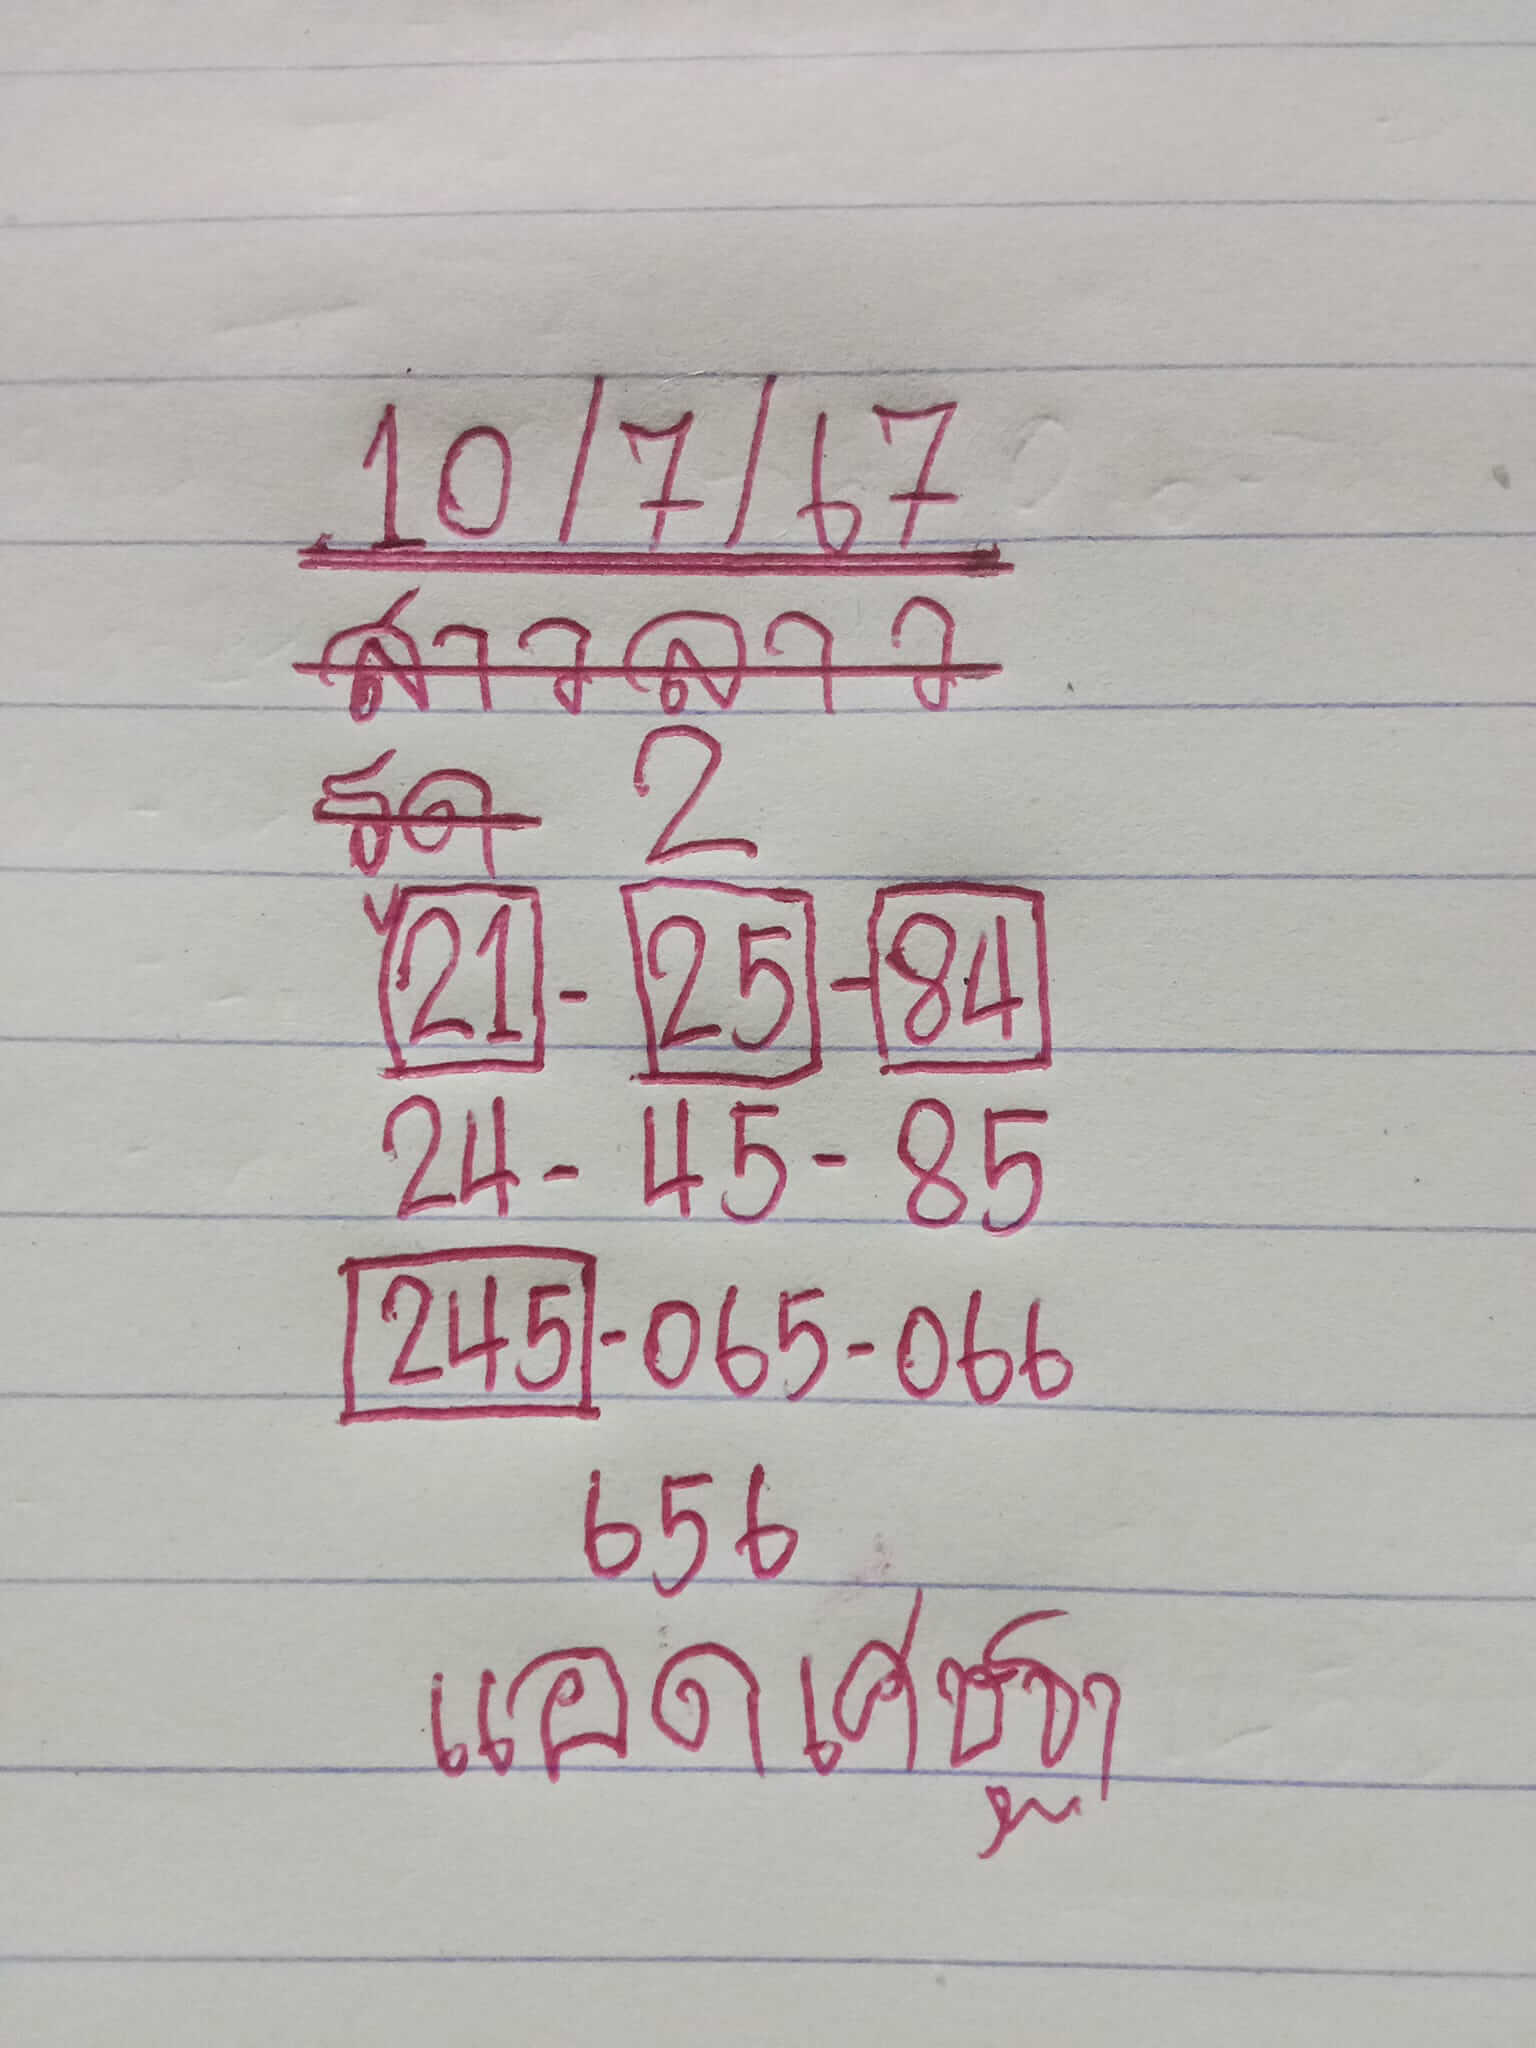 10/7/67
สาวลาว
รูด 2
21 - 25 - 84
24 - 45 - 85
245 - 065 - 066
656
แอดเศษฐา